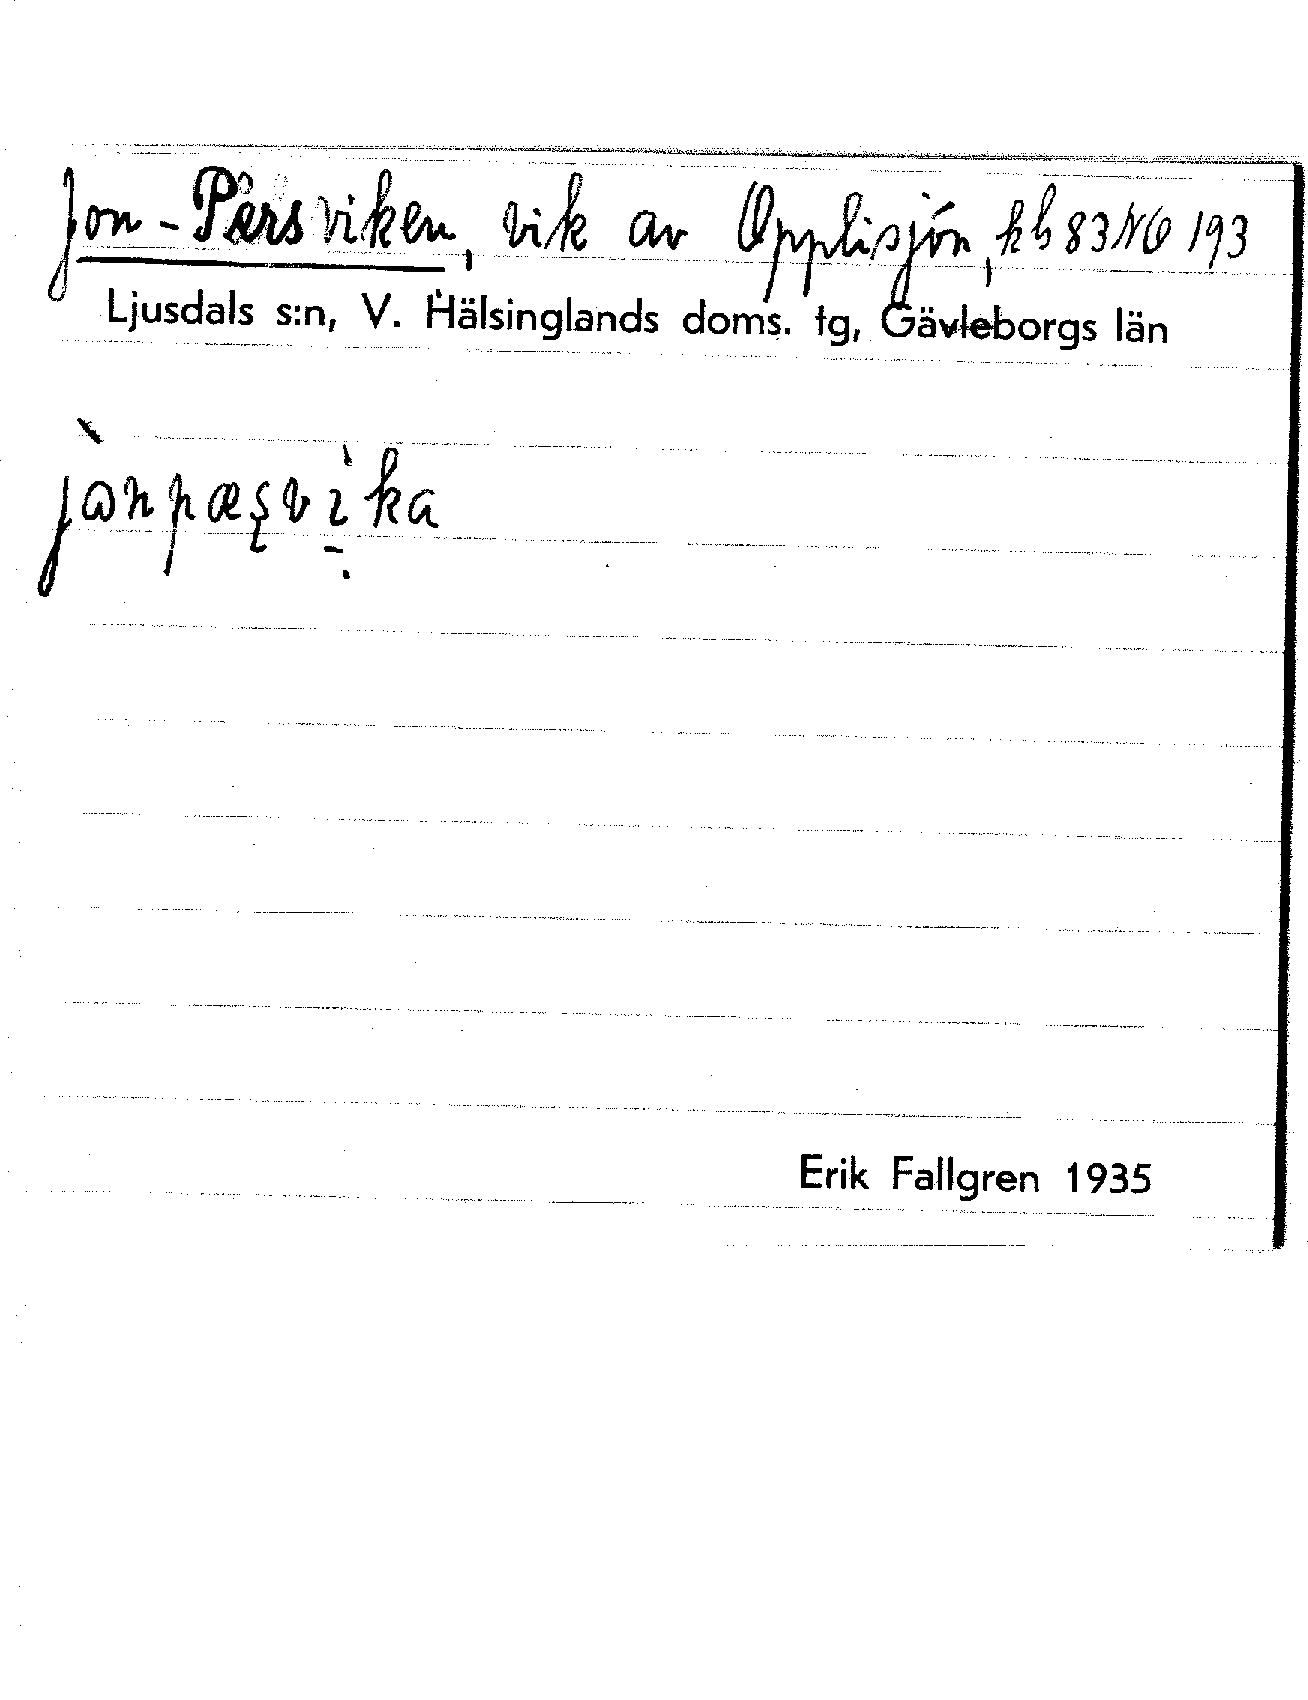 Jon-Persviken, vik av Opplisjön, kb 83 NO 193
Ljusdals s:n, V. Hälsinglands doms. tg, Gävleborgs län
Erik Fallgren 1935